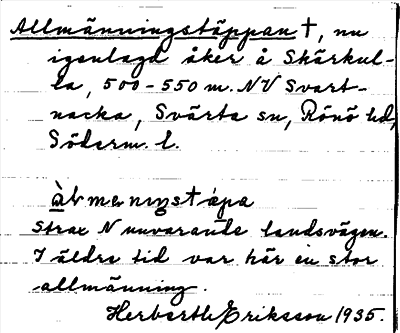 Allmänningstäppan †, nu
igenlagd åker å Skärkul-
la, 500-550 m. NV Svart-
nacka, Svärta sn, Rönö hd,
Söderm. l.
Strax N nuvarande landsvägen.
I äldre tid var här en stor
allmänning.
Herbert Eriksson 1935.